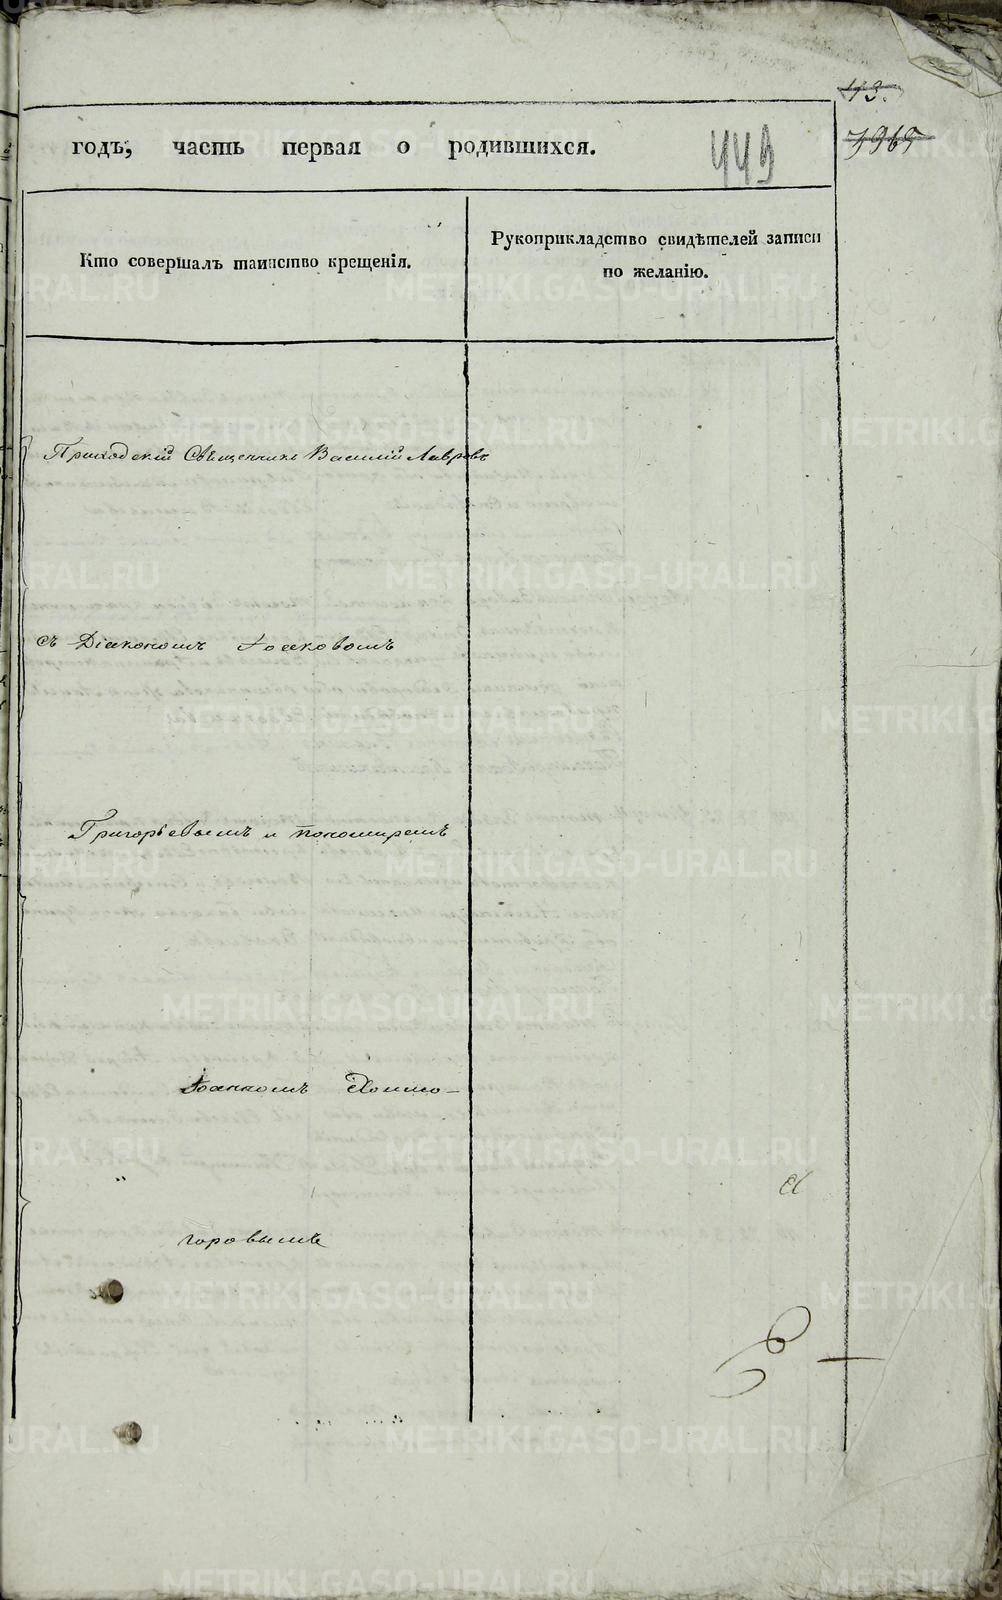 113.
годъ, часть первая о родившихся.
449
Кто совершалъ таинство крещенія.
Рукоприкладство свидѣтелей записи
по желанію.
Приходскій Священникъ Василій Лавровъ
съ Діакономъ
Григорьевымъ и пономаремъ
Іоанномъ Холмо-
горовымъ
METRIKI.GASO-URAL.RU